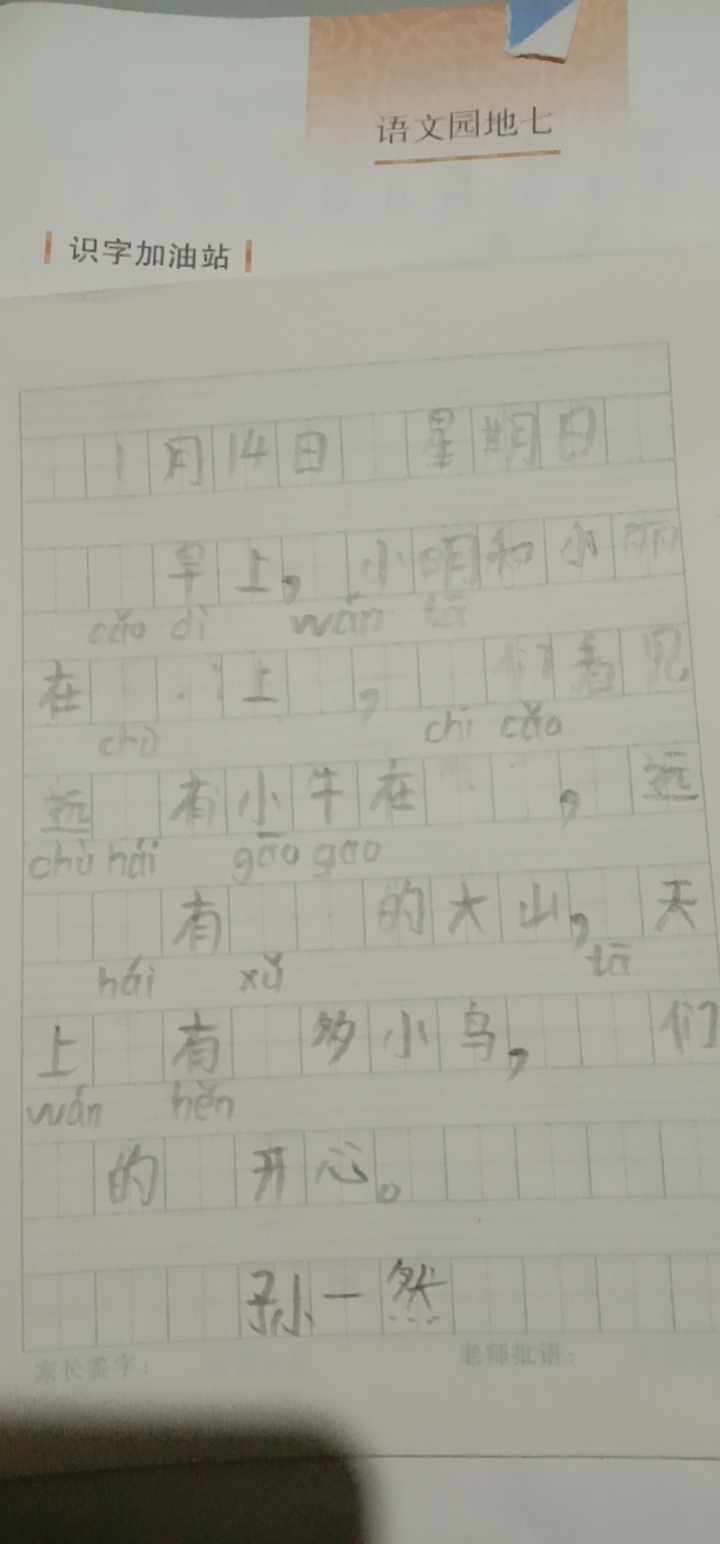 语文园地七
识字加油站
1月14日 星期日
早上，小明和小丽
cǎo dì wán tā
在 上 ， 们看见
chù chī cǎo
远 有小牛在 ，远
chù hái gāo gao
有 的大山，天
hái xǔ tā
上 有 多小鸟， 们
wán hěn
的 开心。
孙一然
家长签字： 老师批语：